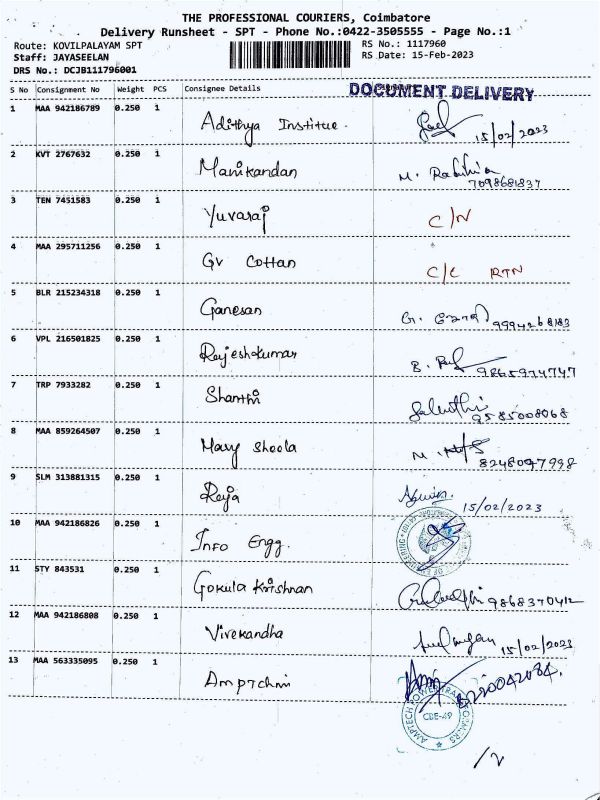 THE PROFESSIONAL COURIERS, Coimbatore
Delivery Runsheet - SPT - Phone No.:0422-3505555 - Page No.:1
Route: KOVILPALAYAM SPT
Staff: JAYASEELAN
DRS No.: DCJB111796001
RS No.: 1117960
RS Date: 15-Feb-2023
S No Consignment No Weight PCS Consignee Details
DOCUMENT DELIVERY
1 MAA 942186789 0.250 1 Adithya Institue. 15/02/2023
2 KVT 2767632 0.250 1 Manikandan M. 7098681837
3 TEN 7451583 0.250 1 Yuvaraj C/N
4 MAA 295711256 0.250 1 GV Cottan C/C RTN
5 BLR 215234318 0.250 1 Ganesan G. 9994268183
6 VPL 216501825 0.250 1 Rajeshkumar 9865974747
7 TRP 7933282 0.250 1 Shanthi 9585008068
8 MAA 859264507 0.250 1 Mary Sheela M. 8248097998
9 SLM 313881315 0.250 1 Raja 15/02/2023
10 MAA 942186826 0.250 1 Info Engg.
OF ENGINEERING
11 STY 843531 0.250 1 Gokula Krishnan 9868370412
12 MAA 942186808 0.250 1 Vivekandha 15/02/2023
13 MAA 563335095 0.250 1 Amptchni 8220042084.
AMPTECH POWER TRANSFORMERS
CBE-49